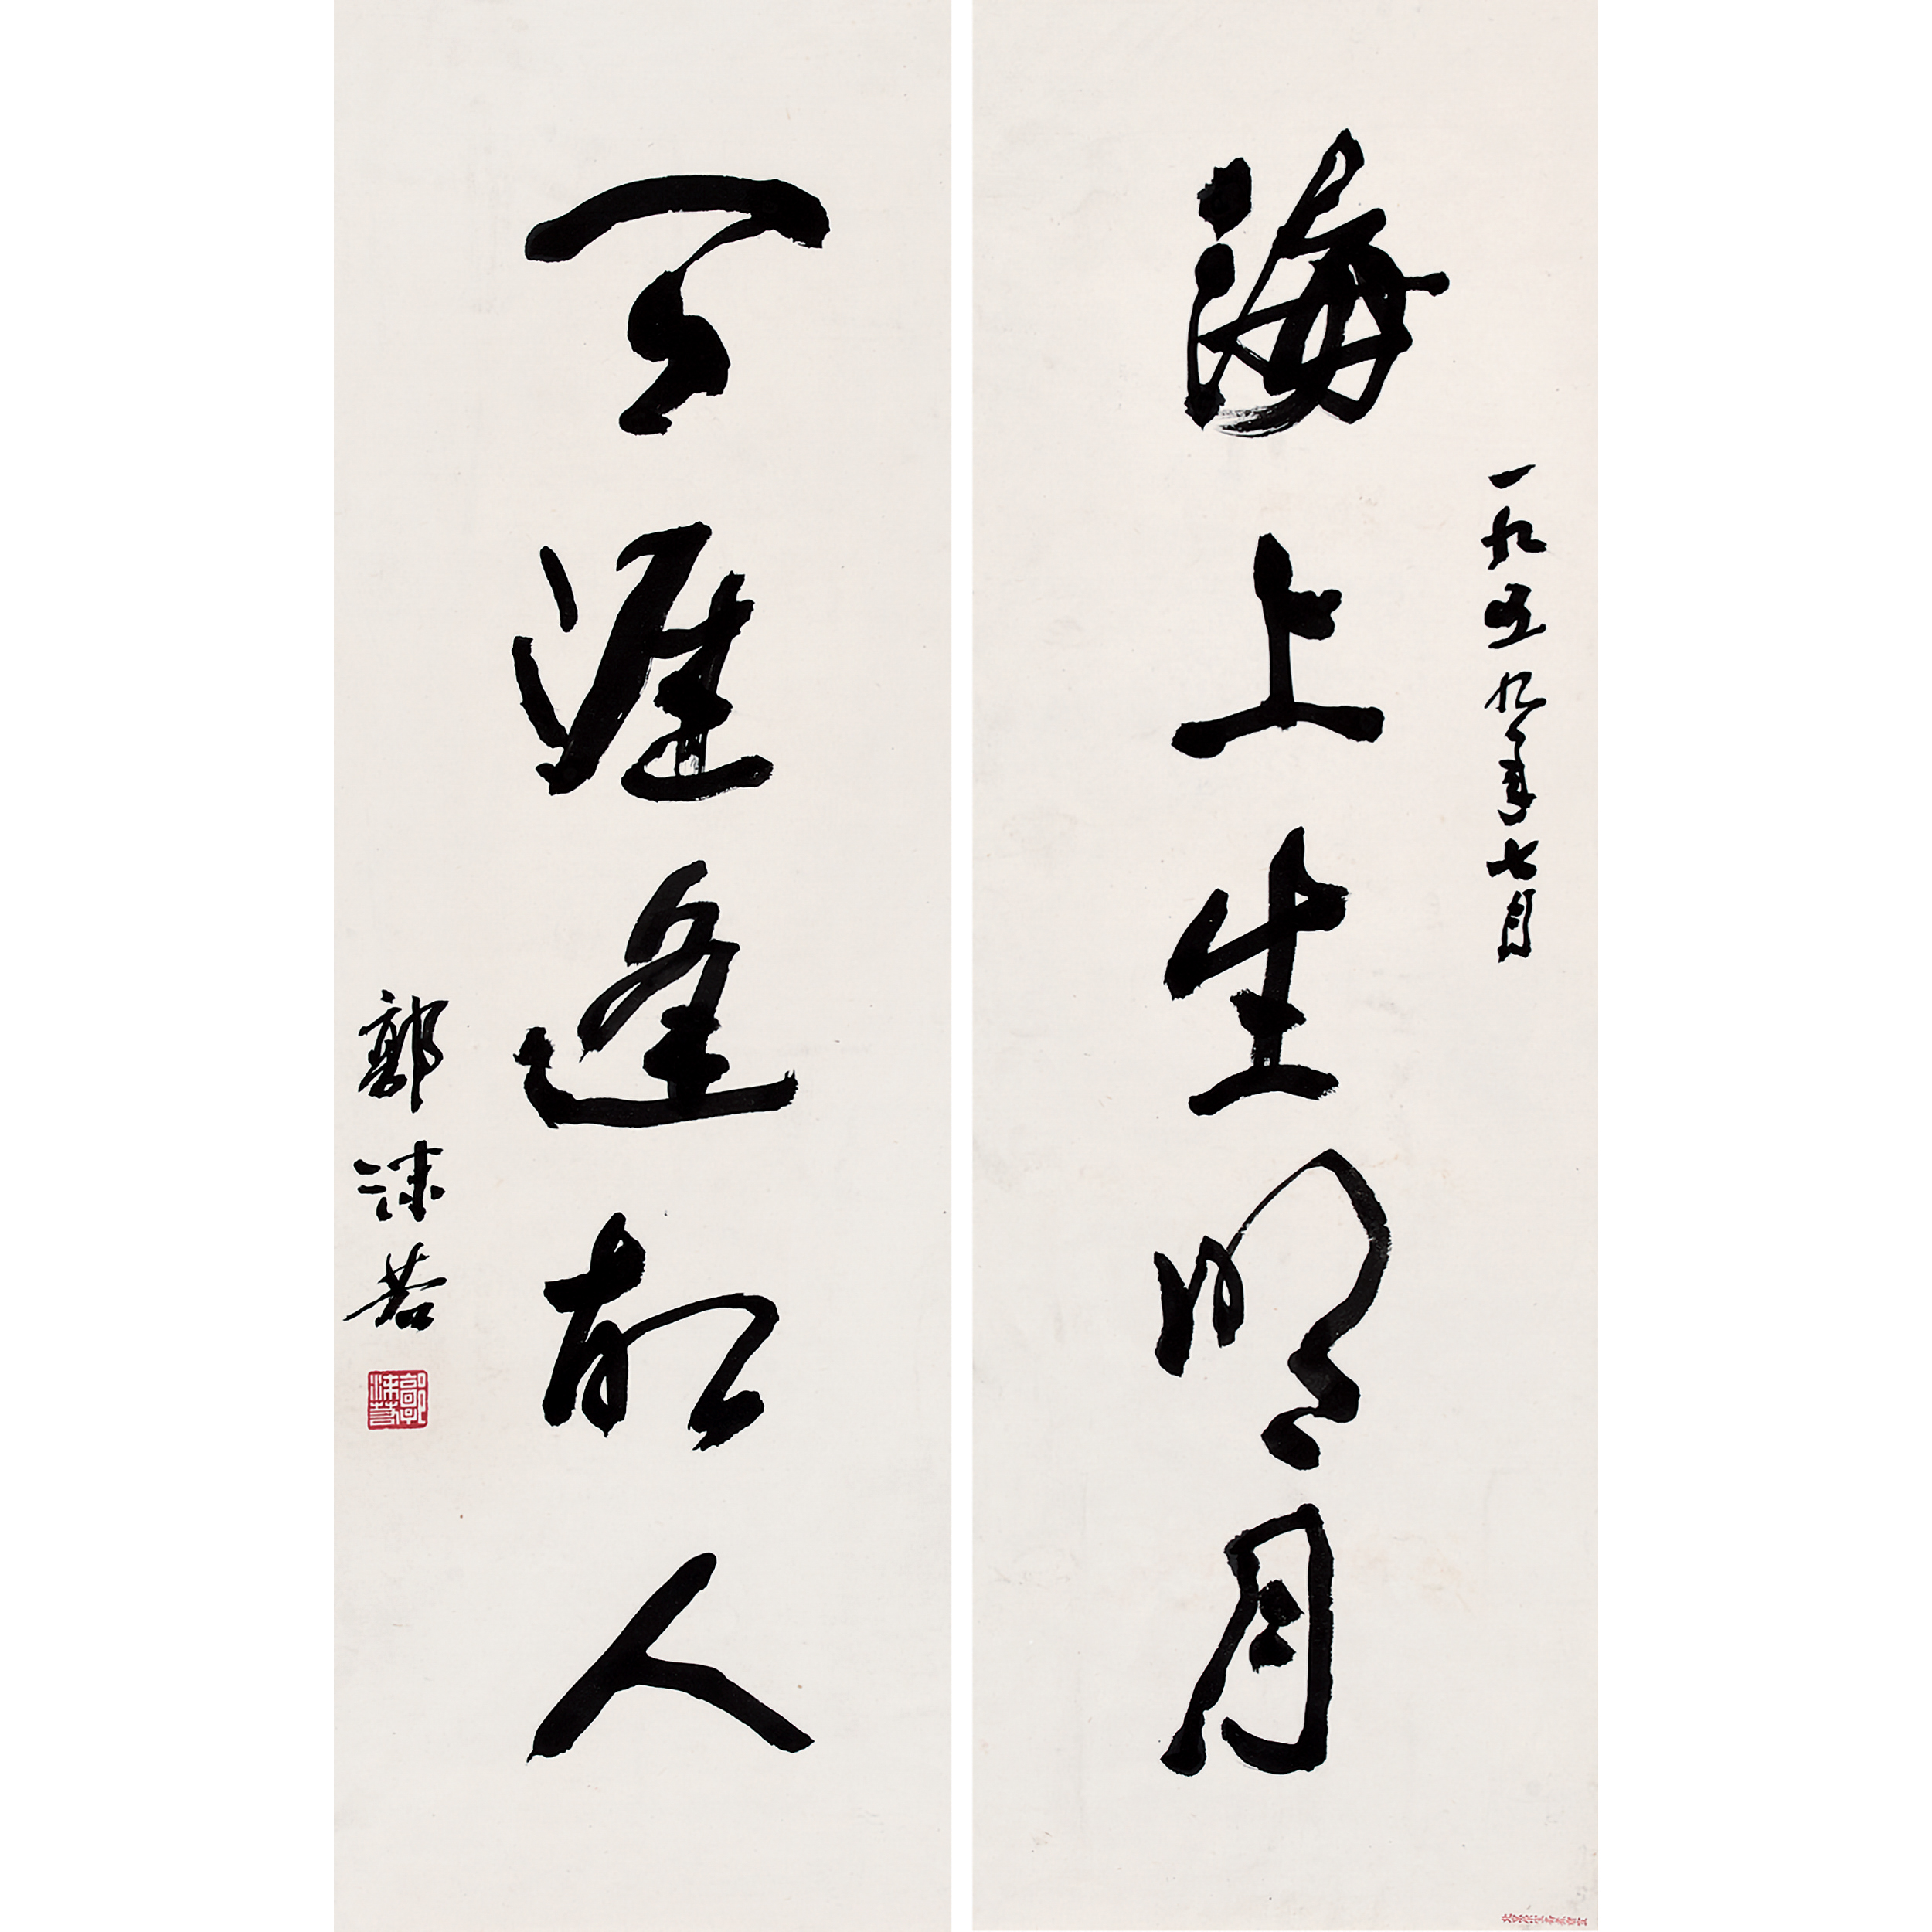 一九五九年七月
海上生明月
天涯逢故人
郭沫若
郭沫若